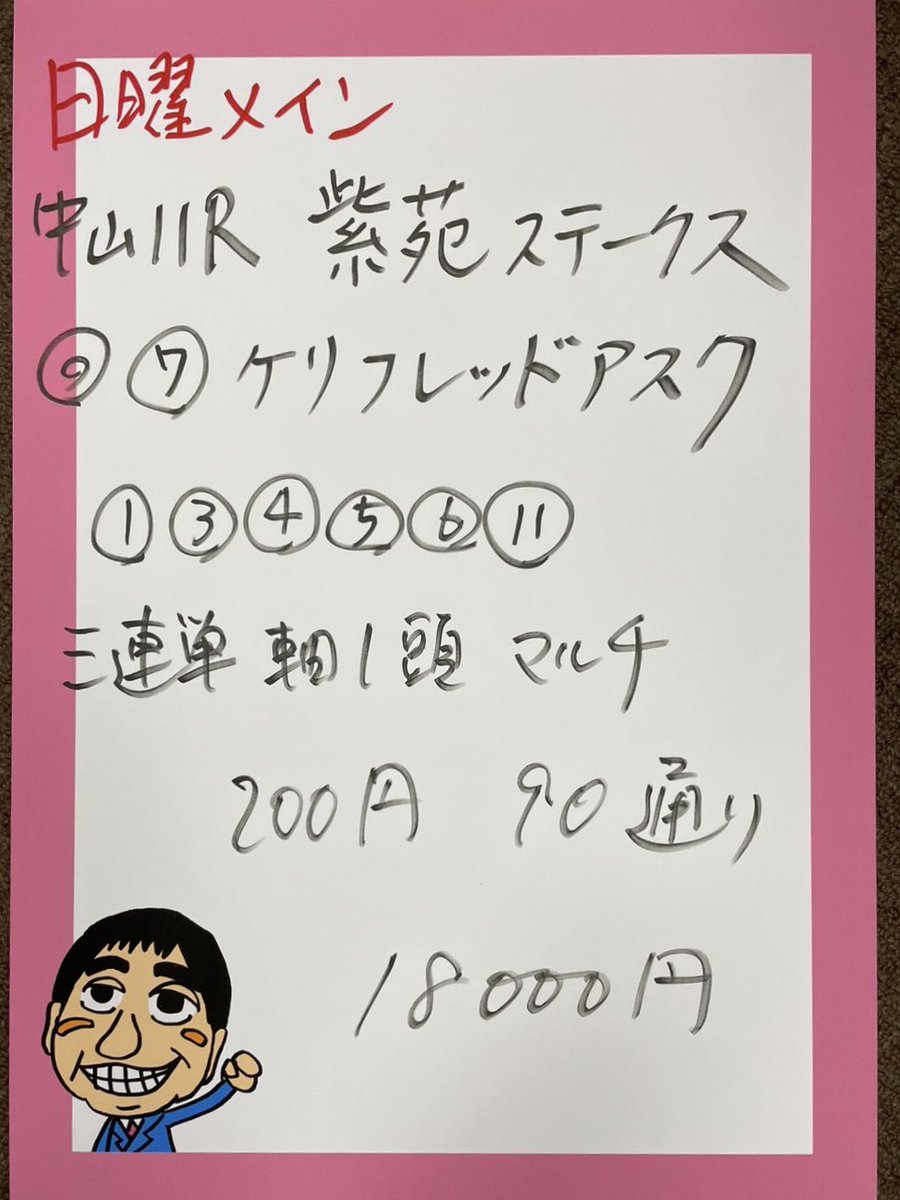 日曜メイン
中山11R 紫苑ステークス
◎ ⑦ ケリフレッドアスク
① ③ ④ ⑤ ⑥ ⑪
三連単 軸1頭 マルチ
200円 90通り
18000円